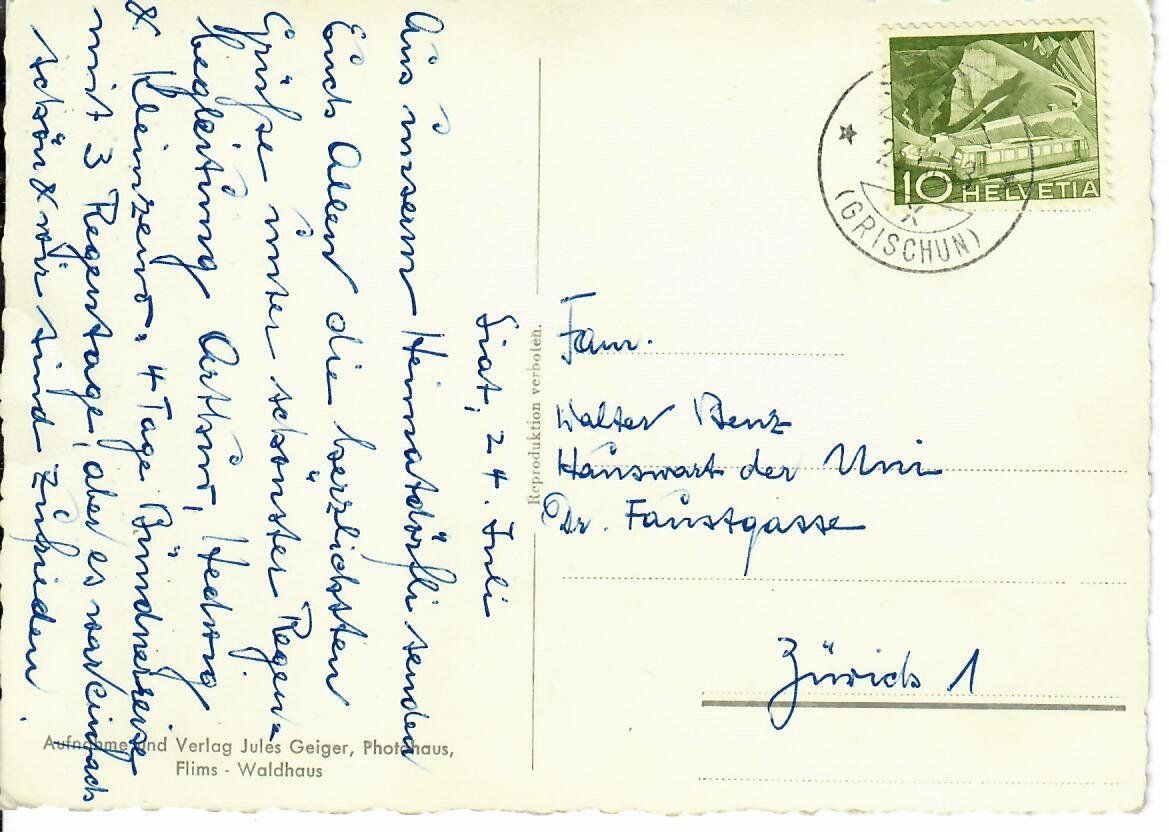 Siat, 24. Juli
Aus unserm Heimatdörfli senden
Euch Allen die herzlichsten
Grüsse unter schönster Regen=
begleitung Arthur, Hedwig
& Kleinzeud. 4 Tage Bündnerreise
mit 3 Regentage, aber es war einfach
schön & wir sind zufrieden.
Aufnahme und Verlag Jules Geiger, Photohaus,
Flims - Waldhaus
Reproduktion verboten.
10 HELVETIA
(GRISCHUN)
Fam.
Walter Benz
Hauswart der Uni
Dr. Faustgasse
Zürich 1